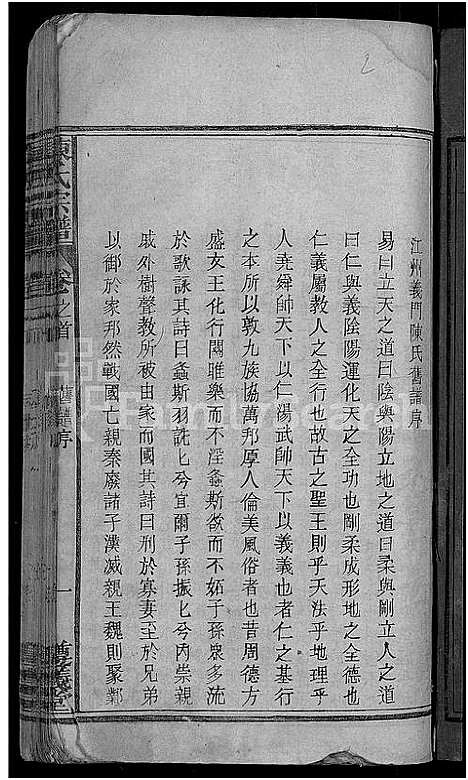 江州義門陳氏舊譜序
易曰立天之道曰陰與陽立地之道曰柔與剛立人之道
曰仁與義陰陽運化天之全功也剛柔成形地之全德也
仁義屬教人之全行也故古之聖王則乎天法乎地理乎
人堯舜帥天下以仁湯武帥天下以義義也者仁之基行
之本所以敦九族協萬邦厚人倫美風俗者也昔周德方
盛女王化行關雎樂而不淫螽斯欲而不妬子孫衆多流
於歌詠其詩曰螽斯羽詵匕兮宜爾子孫振匕兮內崇親
戚外樹聲教所被由家而國其詩曰刑於寡妻至於兄弟
以御於家邦然戰國亡親秦廢諸子漢滅親王魏則聚鄰
陳氏宗譜
卷之首
舊譜序
一
義堂
2